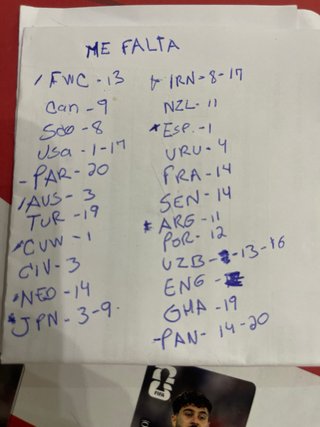 ME FALTA
/ FWC - 13
Can - 9
Sco - 8
Usa - 1 - 17
- PAR - 20
/ AUS - 3
TUR - 19
CUW - 1
CIV - 3
NED - 14
JPN - 3 - 9
IRN - 8 - 17
NZL - 11
ESP. - 1
URU - 4
FRA - 14
SEN - 14
ARG - 11
POR - 12
UZB - 13 - 16
ENG -
GHA - 19
- PAN - 14 - 20
26
FIFA